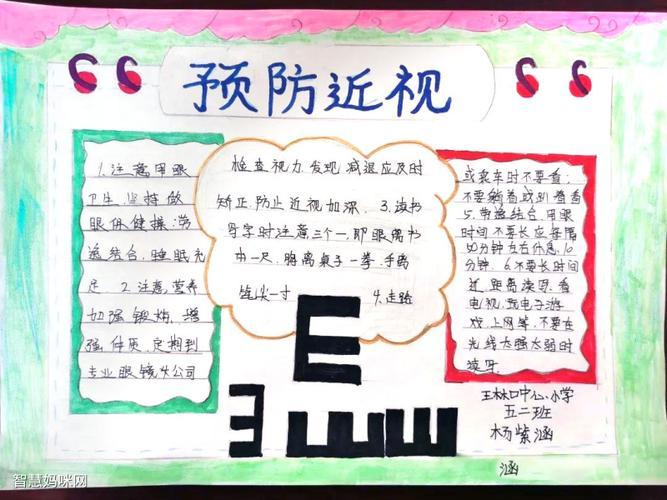 预防近视
1.注意用眼
卫生,坚持做
眼保健操,劳
逸结合,睡眠充
足 2.注意营养
加强锻炼,增
强体质,定期到
专业眼镜公司
检查视力,发现减退应及时
矫正,防止近视加深. 3.读书
写字时注意三个一,即眼离书
本一尺,胸离桌子一拳,手离
笔尖一寸 4.走路
或乘车时不要看;
不要躺着或趴着看
5.劳逸结合,用眼
时间不要长应每隔
50分钟左右休息10
分钟. 6.不要长时间
近距离读写.看
电视,玩电子游
戏,上网等,不要在
光线太强太弱时
读写
E
E E E
林口中心小学
五二班
杨紫涵
涵
智慧妈咪网